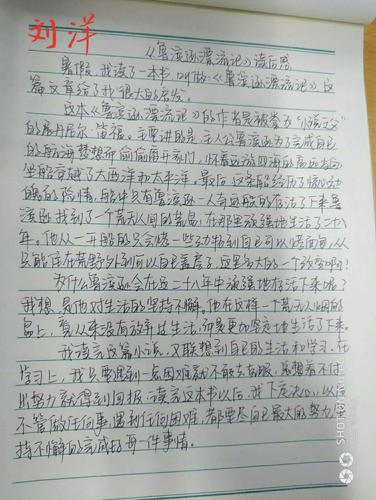 刘洋
《鲁滨逊漂流记》读后感
暑假,我读了一本书,叫做《鲁滨逊漂流记》这
篇文章给了我很大的启发。
这本《鲁滨逊漂流记》的作者是被誉为“小说之父”
的展丹尼尔·笛福。主要讲的是:主人公鲁滨逊为了完成自己
的航海梦想而偷偷离开家门,怀着远游四海的高远志向
坐船穿越了大西洋和太平洋。最后,这条船经历了惊心动
魄的险情,船中只有鲁滨逊一人奇迹般的存活了下来鲁
滨逊找到了一个荒无人间的荒岛,在那里顽强地生活了二十八
年。他从一开始的只会烧一些动物到自己可以烤面包,从
只能住在荒野外到可以自己盖房子,这是多大的一个改变啊!
为什么鲁滨逊会在这二十八年中顽强地存活下来呢?
我想,是他对生活的坚持不懈。他在这样一个荒无人烟的
岛上,看从来没有放弃过生活,而是更加坚定地生活了下来。
我读完这篇小说,又联想到自己的生活和学习。在
学习上,我只要遇到一点困难就不敢去克服,总想着不付
出努力就得到回报。读完这本书以后,我下定决心,以后
不管做任何事,遇到任何困难,都要尽自己最大的努力,坚
持不懈的完成好每一件事情。